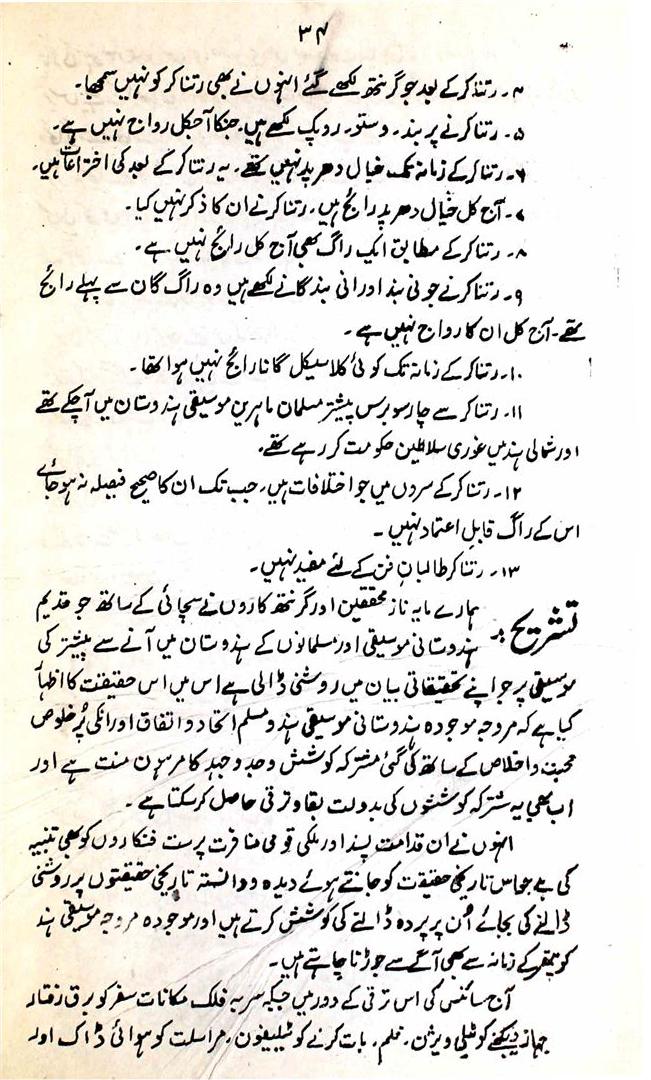 ۳۴
۴۔ رتناکر کے بعد جو گرنتھ لکھے گئے انہوں نے بھی رتناکر کو نہیں سمجھا۔
۵۔ رتناکر نے پربند۔ وستو۔ روپک لکھے ہیں۔ جنکا آجکل رواج نہیں ہے۔
۶۔ رتناکر کے زمانہ تک خیال دھرپد نہیں تھے۔ یہ رتناکر کے بعد کی اختراعات ہیں۔
۷۔ آج کل خیال دھرپد رائج ہیں۔ رتناکر نے ان کا ذکر نہیں کیا۔
۸۔ رتناکر کے مطابق ایک راگ بھی آج کل رائج نہیں ہے۔
۹۔ رتناکر نے جو نی بند اور انی بند گانے لکھے ہیں وہ راگ گان سے پہلے رائج
تھے۔ آج کل ان کا رواج نہیں ہے۔
۱۰۔ رتناکر کے زمانہ تک کوئی کلاسیکل گانا رائج نہیں ہوا تھا۔
۱۱۔ رتناکر سے چار سو برس پیشتر مسلمان ماہرین موسیقی ہندوستان میں آچکے تھے
اور شمالی ہند میں غوری سلاطین حکومت کر رہے تھے۔
۱۲۔ رتناکر کے سروں میں جو اختلافات ہیں۔ جب تک ان کا صحیح فیصلہ نہ ہو جائے
اس کے راگ قابلِ اعتماد نہیں۔
۱۳۔ رتناکر طالبانِ فن کے لئے مفید نہیں۔
تشریح:۔ ہمارے مایہ ناز محققین اور گرنتھ کاروں نے سچائی کے ساتھ جو قدیم
ہندوستانی موسیقی اور مسلمانوں کے ہندوستان میں آنے سے پیشتر کی
موسیقی پر جو اپنے تحقیقاتی بیان میں روشنی ڈالی ہے اس میں اس حقیقت کا اظہار
کیا ہے کہ مروجہ موجودہ ہندوستانی موسیقی ہندو مسلم اتحاد و اتفاق اور انکی پُر خلوص
محبت و اخلاص کے ساتھ کی گئی مشترکہ کوشش و جدوجہد کا مرہون منت ہے اور
اب بھی یہ مشترکہ کوششوں کی بدولت بقا و ترقی حاصل کر سکتا ہے۔
انہوں نے ان قدامت پسند اور ملکی قومی منافرت پرست فنکاروں کو بھی تنبیہ
کی ہے جو اس تاریخی حقیقت کو جانتے ہوئے دیدہ و دانستہ تاریخی حقیقتوں پر روشنی
ڈالنے کی بجائے اُن پر پردہ ڈالنے کی کوشش کرتے ہیں اور موجودہ مروجہ موسیقی ہند
کو پتھر کے زمانہ سے بھی آگے سے جوڑنا چاہتے ہیں۔
آج سائنس کی اس ترقی کے دور میں جبکہ سر بہ فلک مکانات سفر کو برق رفتار
جہاز دیکھنے کو ٹیلی ویژن۔ فلم۔ بات کرنے کو ٹیلیفون۔ مراسلت کو ہوائی ڈاک اور